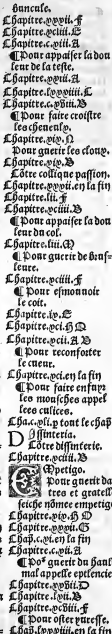 huncule.
Chapitre.xxvii.F
Chapitre.cliii.E
Chapitre.c.xiii.A
¶ Pour appaiser la dou
leur de la teste.
Chapitre.xvii.A
Chapitre.lxxxiiii.C
Chapitre.c.xviii.B
¶ Pour faire croistre
les cheueulx.
Chapitre.xiv.N
Pour guerir les cloux.
Chapitre.xix.B
Côtre collique passion.
Chapitre.xxvii.en la fin
Chapitre.lii.F
Chapitre.xciiii.B
¶ Pour appaiser la dou
leur du col.
Chapitre.liii.M
¶ Pour guerir de brus
leure.
Chapitre.xciiii.F
¶ Pour esmouuoir
le coit.
Chapitre.ix.E
Chapitre.xci.H
Chapitre.xcii.A B
¶ Pour reconforter
le cueur.
Chapitre.xci.en la fin
¶ Pour faire enfuyr
les mousches appel
lees culices.
Cha.c.xli.p tout le chap
Dissinteria.
Côtre dissinterie.
Chapitre.xciiii.B
Empetigo.
Pour guerir da
tres et gratelle
seiche nômee empetigo
Chapitre.xiv.H
Chapitre.xxvii.G
Chap.c.vi.en la fin
Chapitre.c.vii.A
¶ Por guerir du hault
mal appelle epilencie
Chapitre.xxviii.D
Chapitre.lvii.B
Chapitre.xciiii.F
¶ Pour oster yuresse.
Chap.lxxviii.en la fin